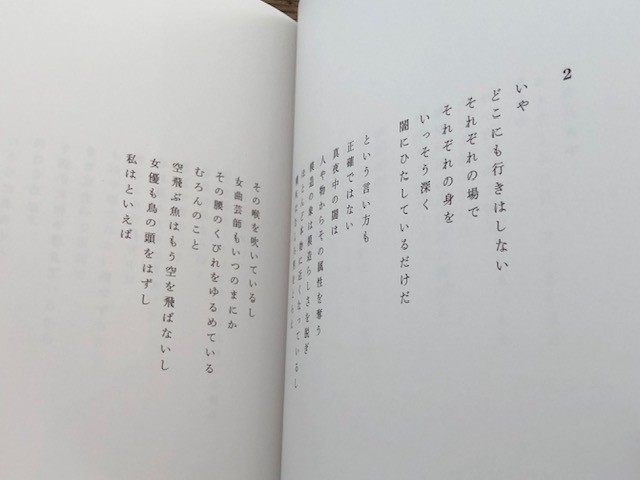 2
いや
どこにも行きはしない
それぞれの場で
それぞれの身を
いっそう深く
闇にひたしているだけだ
という言い方も
正確ではない
真夜中の闇は
人や物からその属性を奪う
模造の象は模造らしさを脱ぎ
ほとんど本物に近くなっているし
その喉を吹いているし
女曲芸師もいつのまにか
その腰のくびれをゆるめている
むろんのこと
空飛ぶ魚はもう空を飛ばないし
女優も鳥の頭をはずし
私はといえば